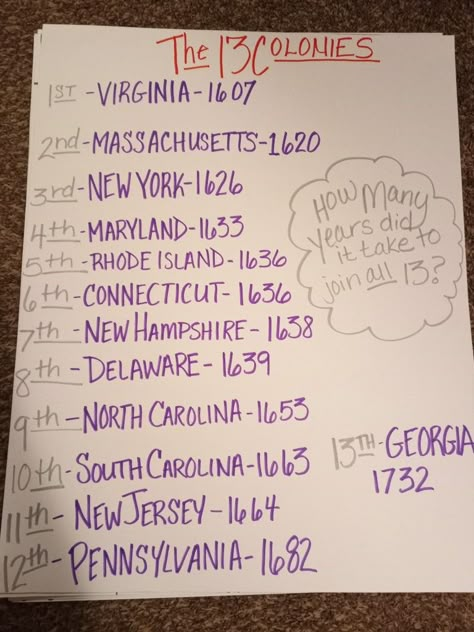 The 13 COLONIES
1ST - VIRGINIA - 1607
2nd - MASSACHUSETTS - 1620
3rd - NEW YORK - 1626
4th - MARYLAND - 1633
5th - RHODE ISLAND - 1636
6th - CONNECTICUT - 1636
7th - NEW HAMPSHIRE - 1638
8th - DELAWARE - 1639
9th - NORTH CAROLINA - 1653
10th - SOUTH CAROLINA - 1663
11th - NEW JERSEY - 1664
12th - PENNSYLVANIA - 1682
13TH - GEORGIA
1732
How Many
years did
it take to
join all 13?